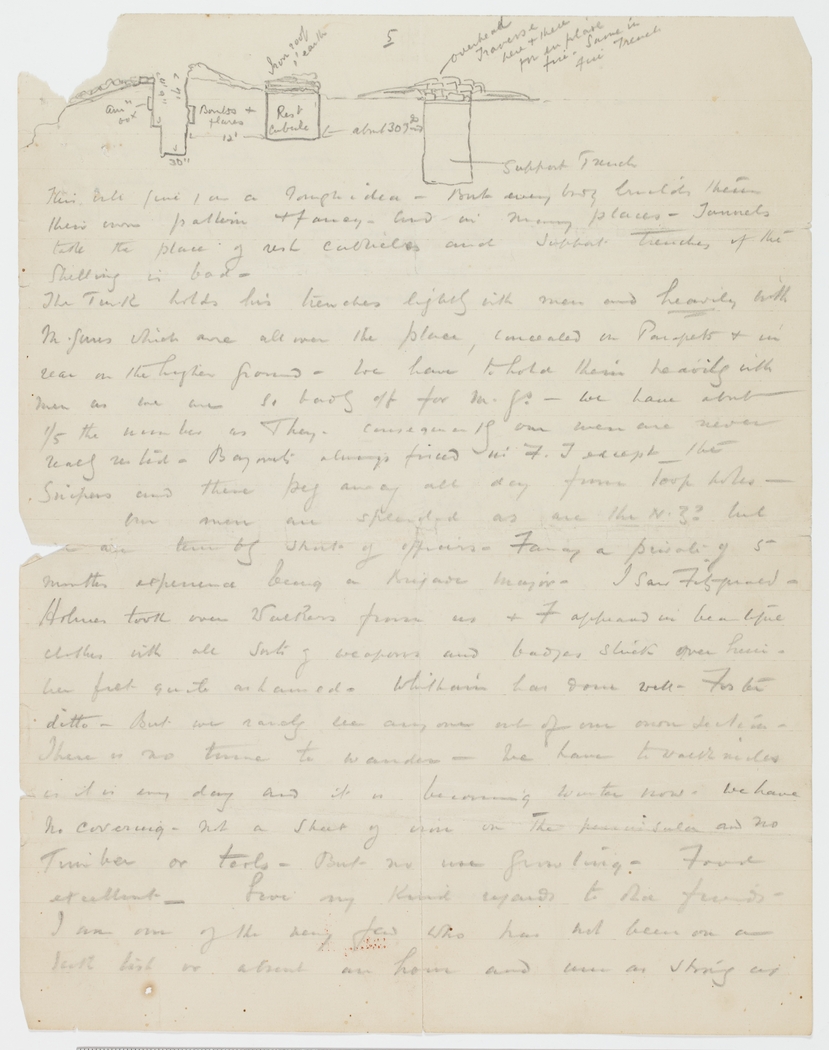 5
Iron roof
& earth
overhead
Traverse
here & there
for enplane
fire. Same in
fire Trench
Bombs +
flares
12'
Rest
Cubicle
about 30 yds
30"
Support Trench
This will give you a rough idea - But every body builds them
their own pattern & fancy - and in many places - Tunnels
take the place of rest cubicles and support trenches if the
Shelling is bad -
The Turk holds his trenches lightly with men and heavily with
M. Guns which are all over the place, concealed in Parapets & in
rear on the higher ground - We have to hold them heavily with
men as we are so badly off for M. Gs - we have about
1/5 the number as They. Consequently our men are never
really rested - Bayonets always fixed in F. T except the
Snipers and these peg away all day from loop holes -
Our men are splendid as are the N. Zs but
are terribly short of officers - Fancy a private of 5
months experience being a Brigade Major - I saw Fitzgerald -
Holmes took over Walkers from us & F appeared in beautiful
clothes with all sorts of weapons and badges stuck over him -
We felt quite ashamed - Whitham has done well - Foster
ditto - But we rarely see anyone out of our own section -
There is no time to wander - We have to walk miles
as it is every day and it is becoming winter now - We have
no covering - not a sheet of iron on the peninsula and no
Timber or tools - But no use growling - Food
excellent - Give my Kind regards to our friends -
I am one of the very few who has not been on a
sick list or absent an hour and am as strong as